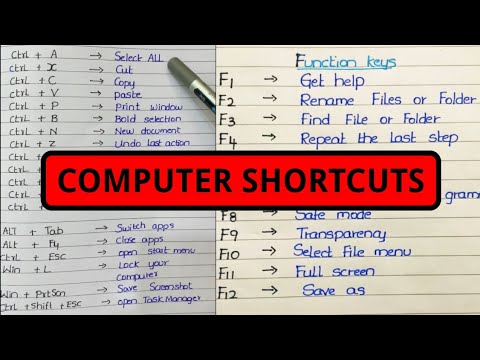 Ctrl + A → Select ALL
Ctrl + X → Cut
Ctrl + C → Copy
Ctrl + V → paste
Ctrl + P → Print window
Ctrl + B → Bold selection
Ctrl + N → New document
Ctrl + Z → Undo last action
Ctrl
Ctrl
Ctrl
Ctrl
Ctrl
ALT + Tab → Switch apps
Alt + F4 → Close apps
Ctrl + ESC → open start menu
Win + L → Lock your
computer
Win + PrtScn → Save Screenshot
Ctrl + Shift + ESC → open Task Manager
Function keys
F1 → Get help
F2 → Rename Files or Folder
F3 → Find File or Folder
F4 → Repeat the last step
F8 → Safe mode
F9 → Transparency
F10 → Select file menu
F11 → Full screen
F12 → Save as
COMPUTER SHORTCUTS